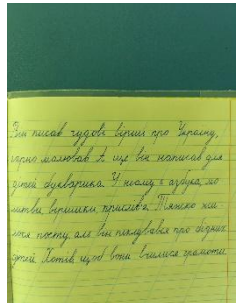 Він писав чудові вірші про Україну,
гарно малював. А ще він написав для
дітей букварика. У ньому є азбука, мо
литви віршики прислів'я. Тяжко жи
лося поету, але він піклувався про бідних
дітей. Хотів щоб вони вчилися грамоти